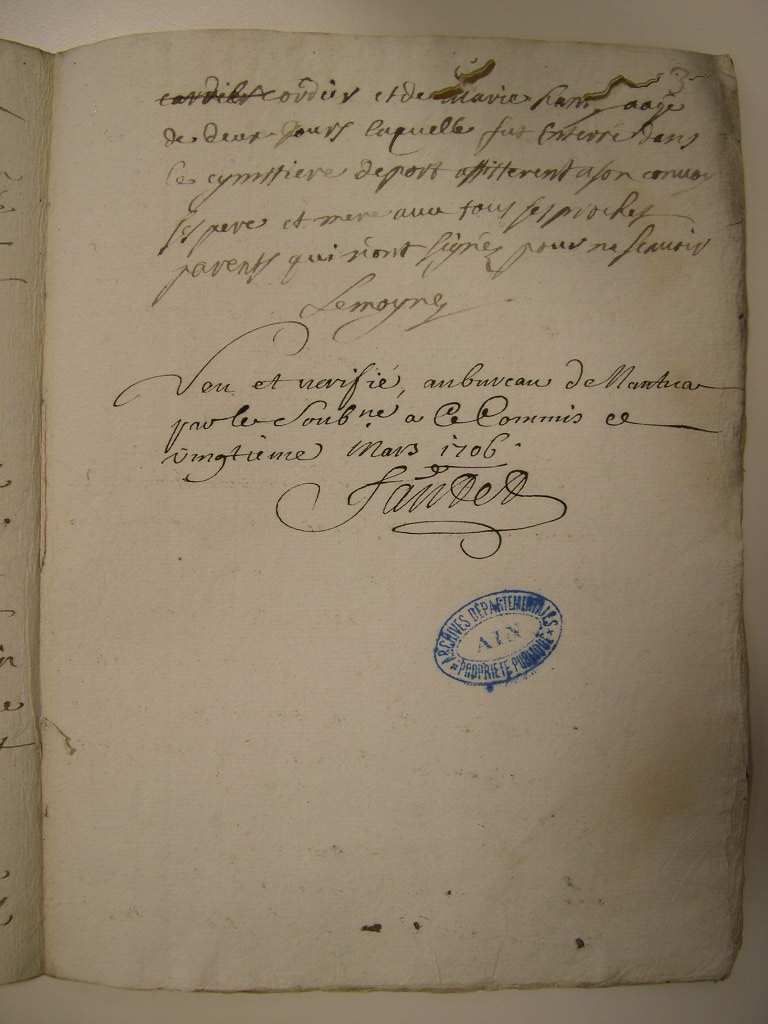 3
cordier et de marie aagé
de deux jours laquelle fut Enterré dans
le cymttiere deport assitterent a son convoy
ses pere et mere avec tous ses proches
parents qui n'ont signéz pour ne scavoir
Lemoyne
Veu et verifié, au bureau de Mantua
par le Soubne a Ce Commis ce
vingtieme Mars 1706.
ARCHIVES DÉPARTEMENTALES
AIN
PROPRIÉTÉ PUBLIQUE